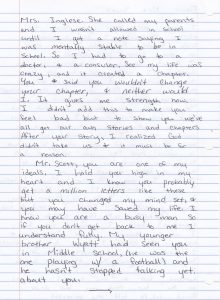 Mrs. Inglese. She called my parents
and I wasn't allowed in school
until I got a note saying I
was mentally stable to be in
School. So I had to go to a
doctor, & a consuler. See, my life was
crazy, and it created a chapter.
You & said you wouldn't change
your chapter, & neither would
I. It gives me strength now.
I didn't add this to make you
feel bad but to show you we've
all got our own stories and chapters
After your story, I realized God
didn't take us & it must be for
a reason.
Mr. Scott, you are one of my
ideals, I hold you high in my
heart and I know you probably
get a million letters like these
but you changed my mind set, &
you may have saved my life. I
know you are a busy man so
if you don't get back to me I
understand fully. My younger
brother Wyatt had seen you
in Middle School, (he was the
one playing w/ a football) and
he hasn't stopped talking yet,
about you.